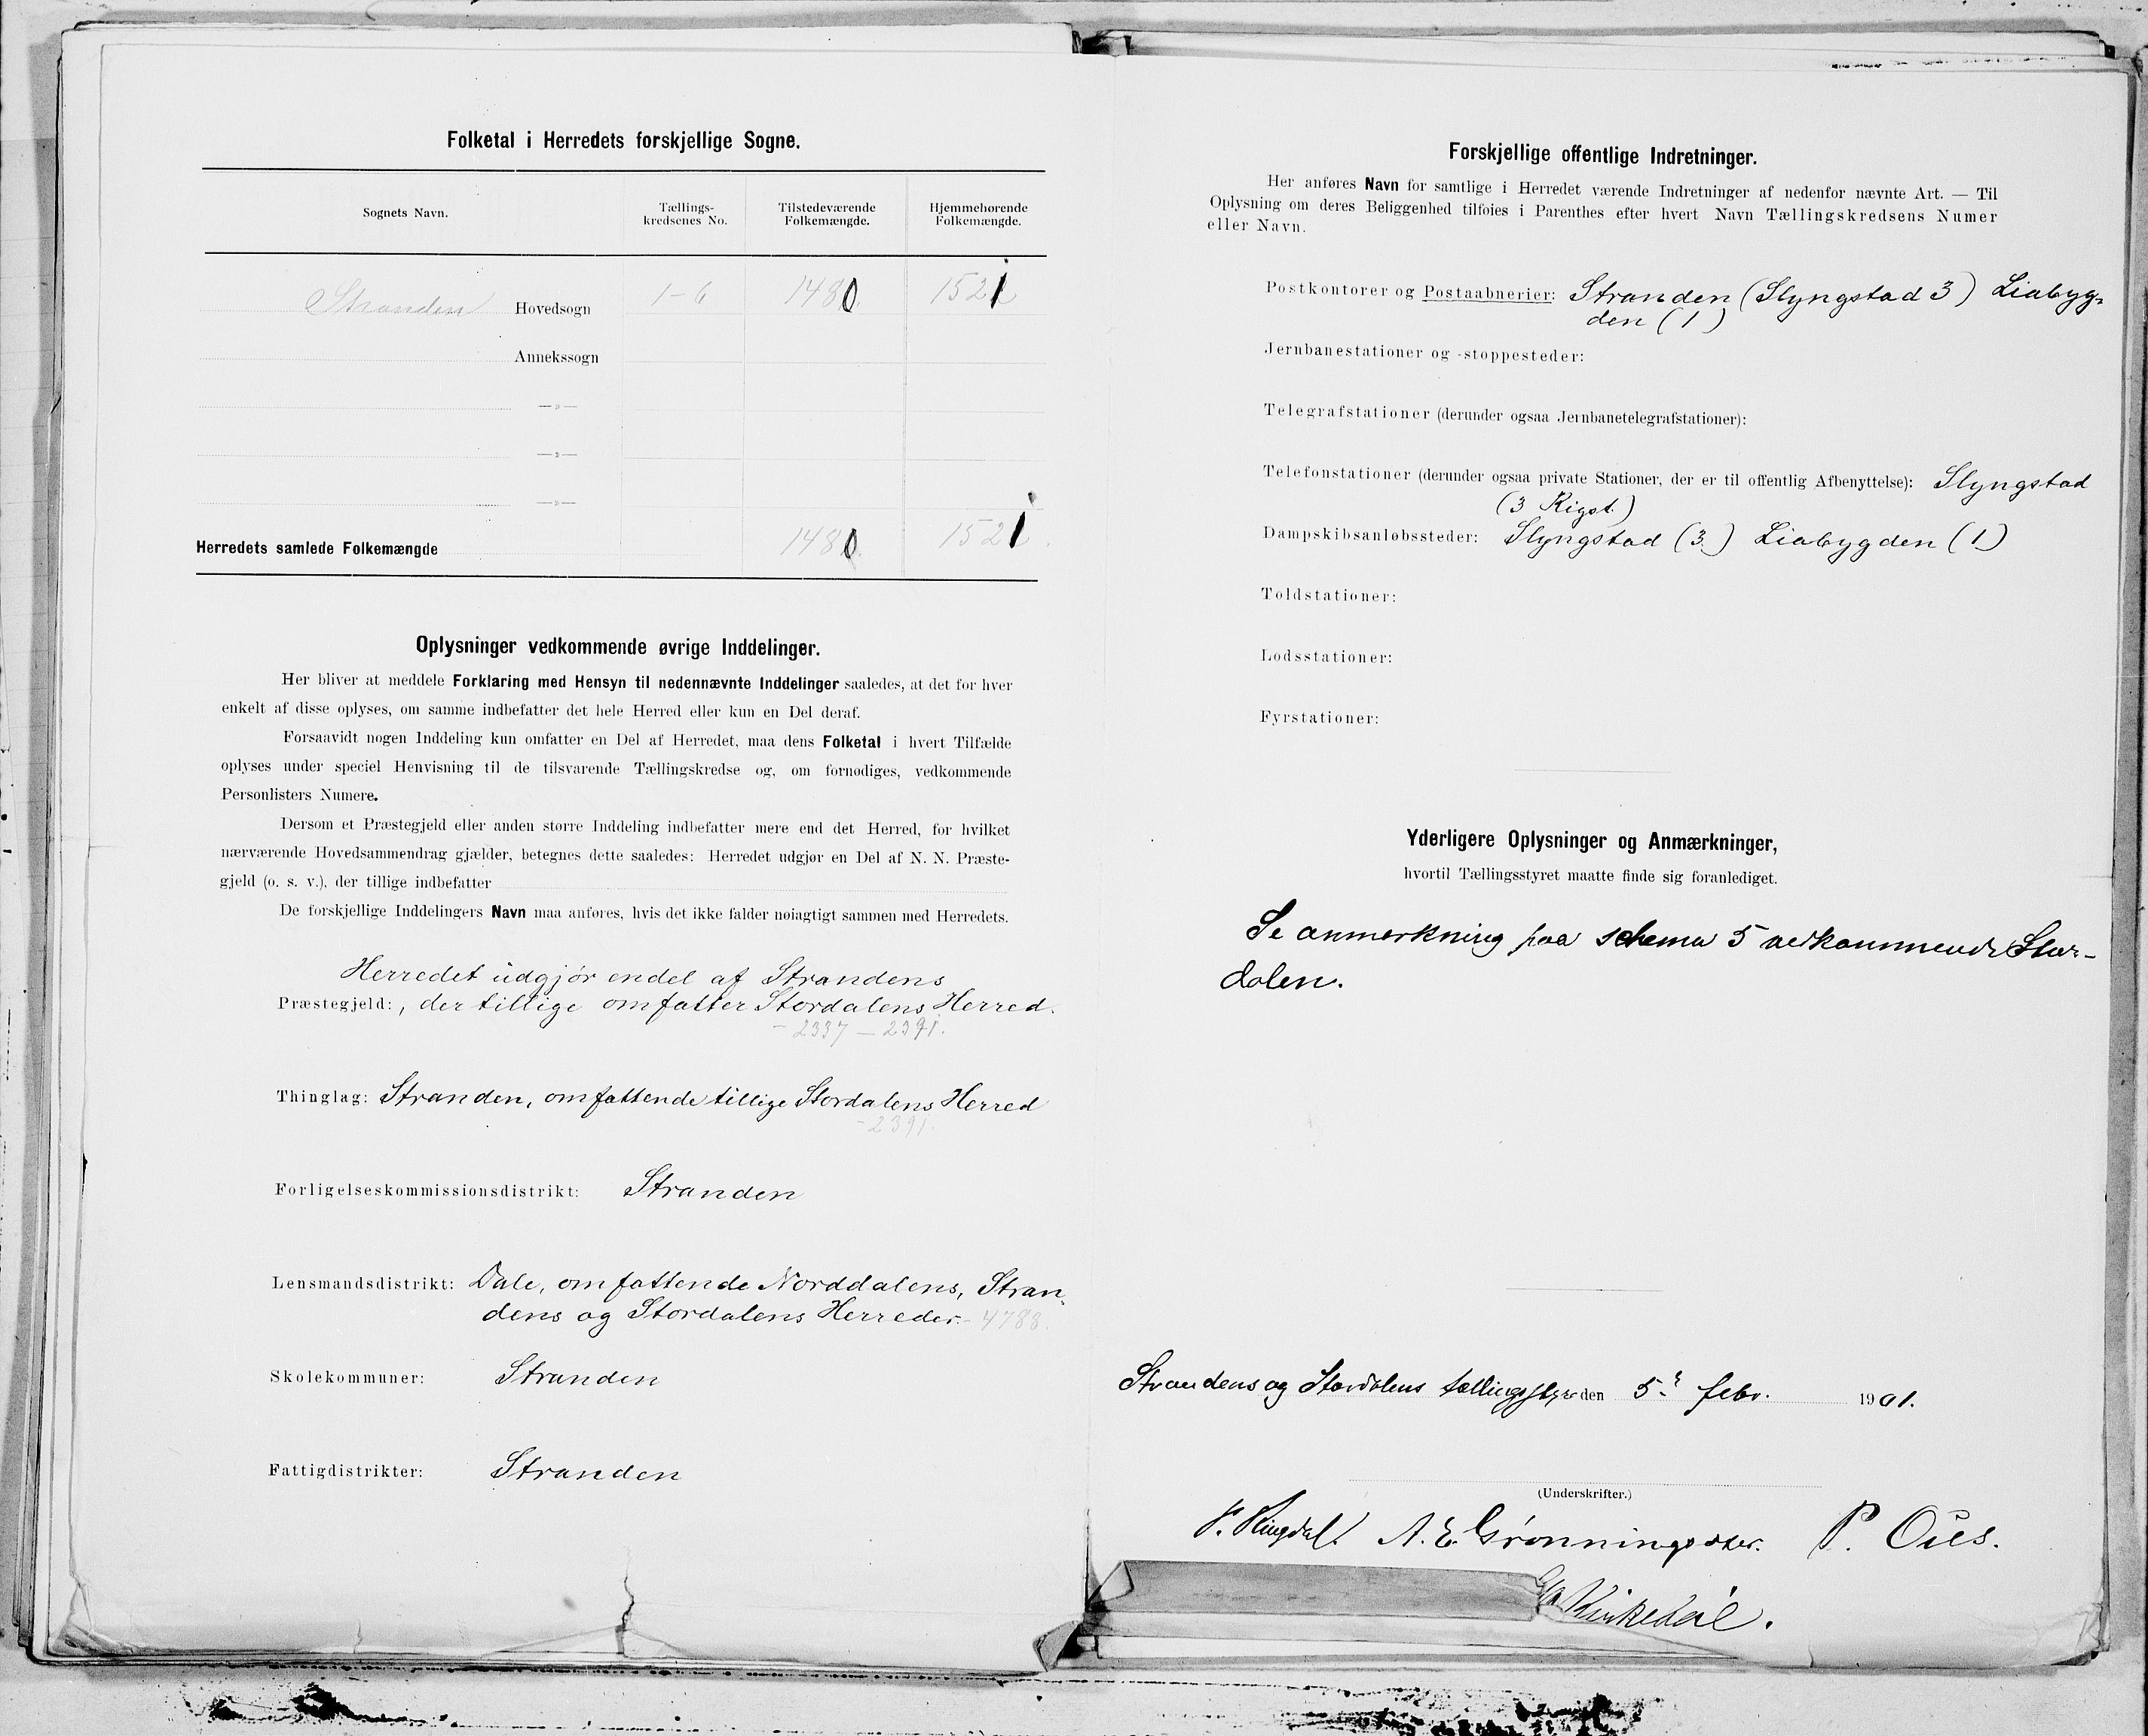 Folketal i Herredets forskjellige Sogne.
Sognets Navn.
Tællings-
kredsenes No.
Tilstedeværende
Folkemængde.
Hjemmehørende
Folkemængde.
Stranden Hovedsogn 1-6 1480 1521
Annekssogn
—»—
—»—
—»—
Herredets samlede Folkemængde 1480 1521
Oplysninger vedkommende øvrige Inddelinger.
Her bliver at meddele Forklaring med Hensyn til nedennævnte Inddelinger saaledes, at det for hver
enkelt af disse oplyses, om samme indbefatter det hele Herred eller kun en Del deraf.
Forsaavidt nogen Inddeling kun omfatter en Del af Herredet, maa dens Folketal i hvert Tilfælde
oplyses under speciel Henvisning til de tilsvarende Tællingskredse og, om fornødiges, vedkommende
Personlisters Numere.
Dersom et Præstegjeld eller anden større Inddeling indbefatter mere end det Herred, for hvilket
nærværende Hovedsammendrag gjælder, betegnes dette saaledes: Herredet udgjør en Del af N. N. Præste-
gjeld (o. s. v.), der tillige indbefatter
De forskjellige Inddelingers Navn maa anføres, hvis det ikke falder nøiagtigt sammen med Herredets.
Herredet udgjör endel af Strandens
Præstegjeld: , der tillige omfatter Stordalens Herred.
- 2337 — 2391.
Thinglag: Stranden, omfattende tillige Stordalens Herred
- 2391.
Forligelseskommissionsdistrikt: Stranden
Lensmandsdistrikt: Dale, omfattende Norddalens, Stran-
dens og Stordalens Herreder. - 4788.
Skolekommuner: Stranden
Fattigdistrikter: Stranden
Forskjellige offentlige Indretninger.
Her anføres Navn for samtlige i Herredet værende Indretninger af nedenfor nævnte Art. — Til
Oplysning om deres Beliggenhed tilføies i Parenthes efter hvert Navn Tællingskredsens Numer
eller Navn.
Postkontorer og Postaabnerier: Stranden (Slyngstad 3) Liabyg-
den (1)
Jernbanestationer og -stoppesteder:
Telegrafstationer (derunder ogsaa Jernbanetelegrafstationer):
Telefonstationer (derunder ogsaa private Stationer, der er til offentlig Afbenyttelse): Slyngstad
(3 Rigst.)
Dampskibsanløbssteder: Slyngstad (3) Liabygden (1)
Toldstationer:
Lodsstationer:
Fyrstationer:
Yderligere Oplysninger og Anmærkninger,
hvortil Tællingsstyret maatte finde sig foranlediget.
Se anmerkning paa schema 5 vedkommende Stor-
dalen.
Strandens og Stordalens tællingsstyre den 5. febr. 1901.
(Underskrifter.)
A. E. Grønningsæter. P. Oies.